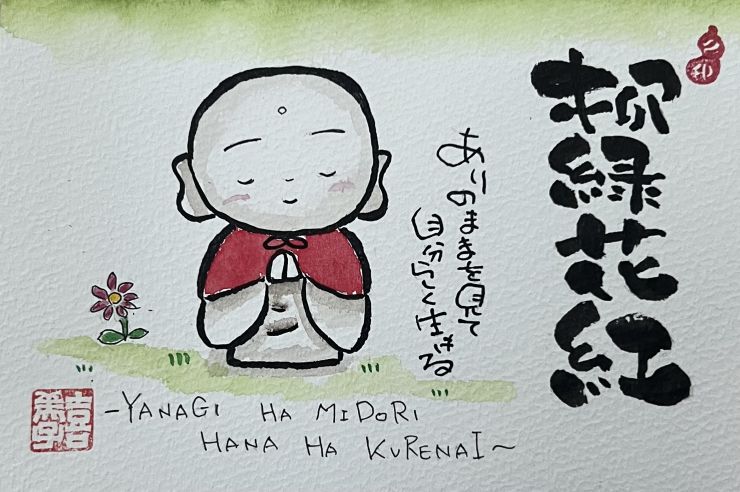 柳緑花紅
ありのままを見て
自分らしく生きる
-YANAGI HA MIDORI
HANA HA KURENAI~